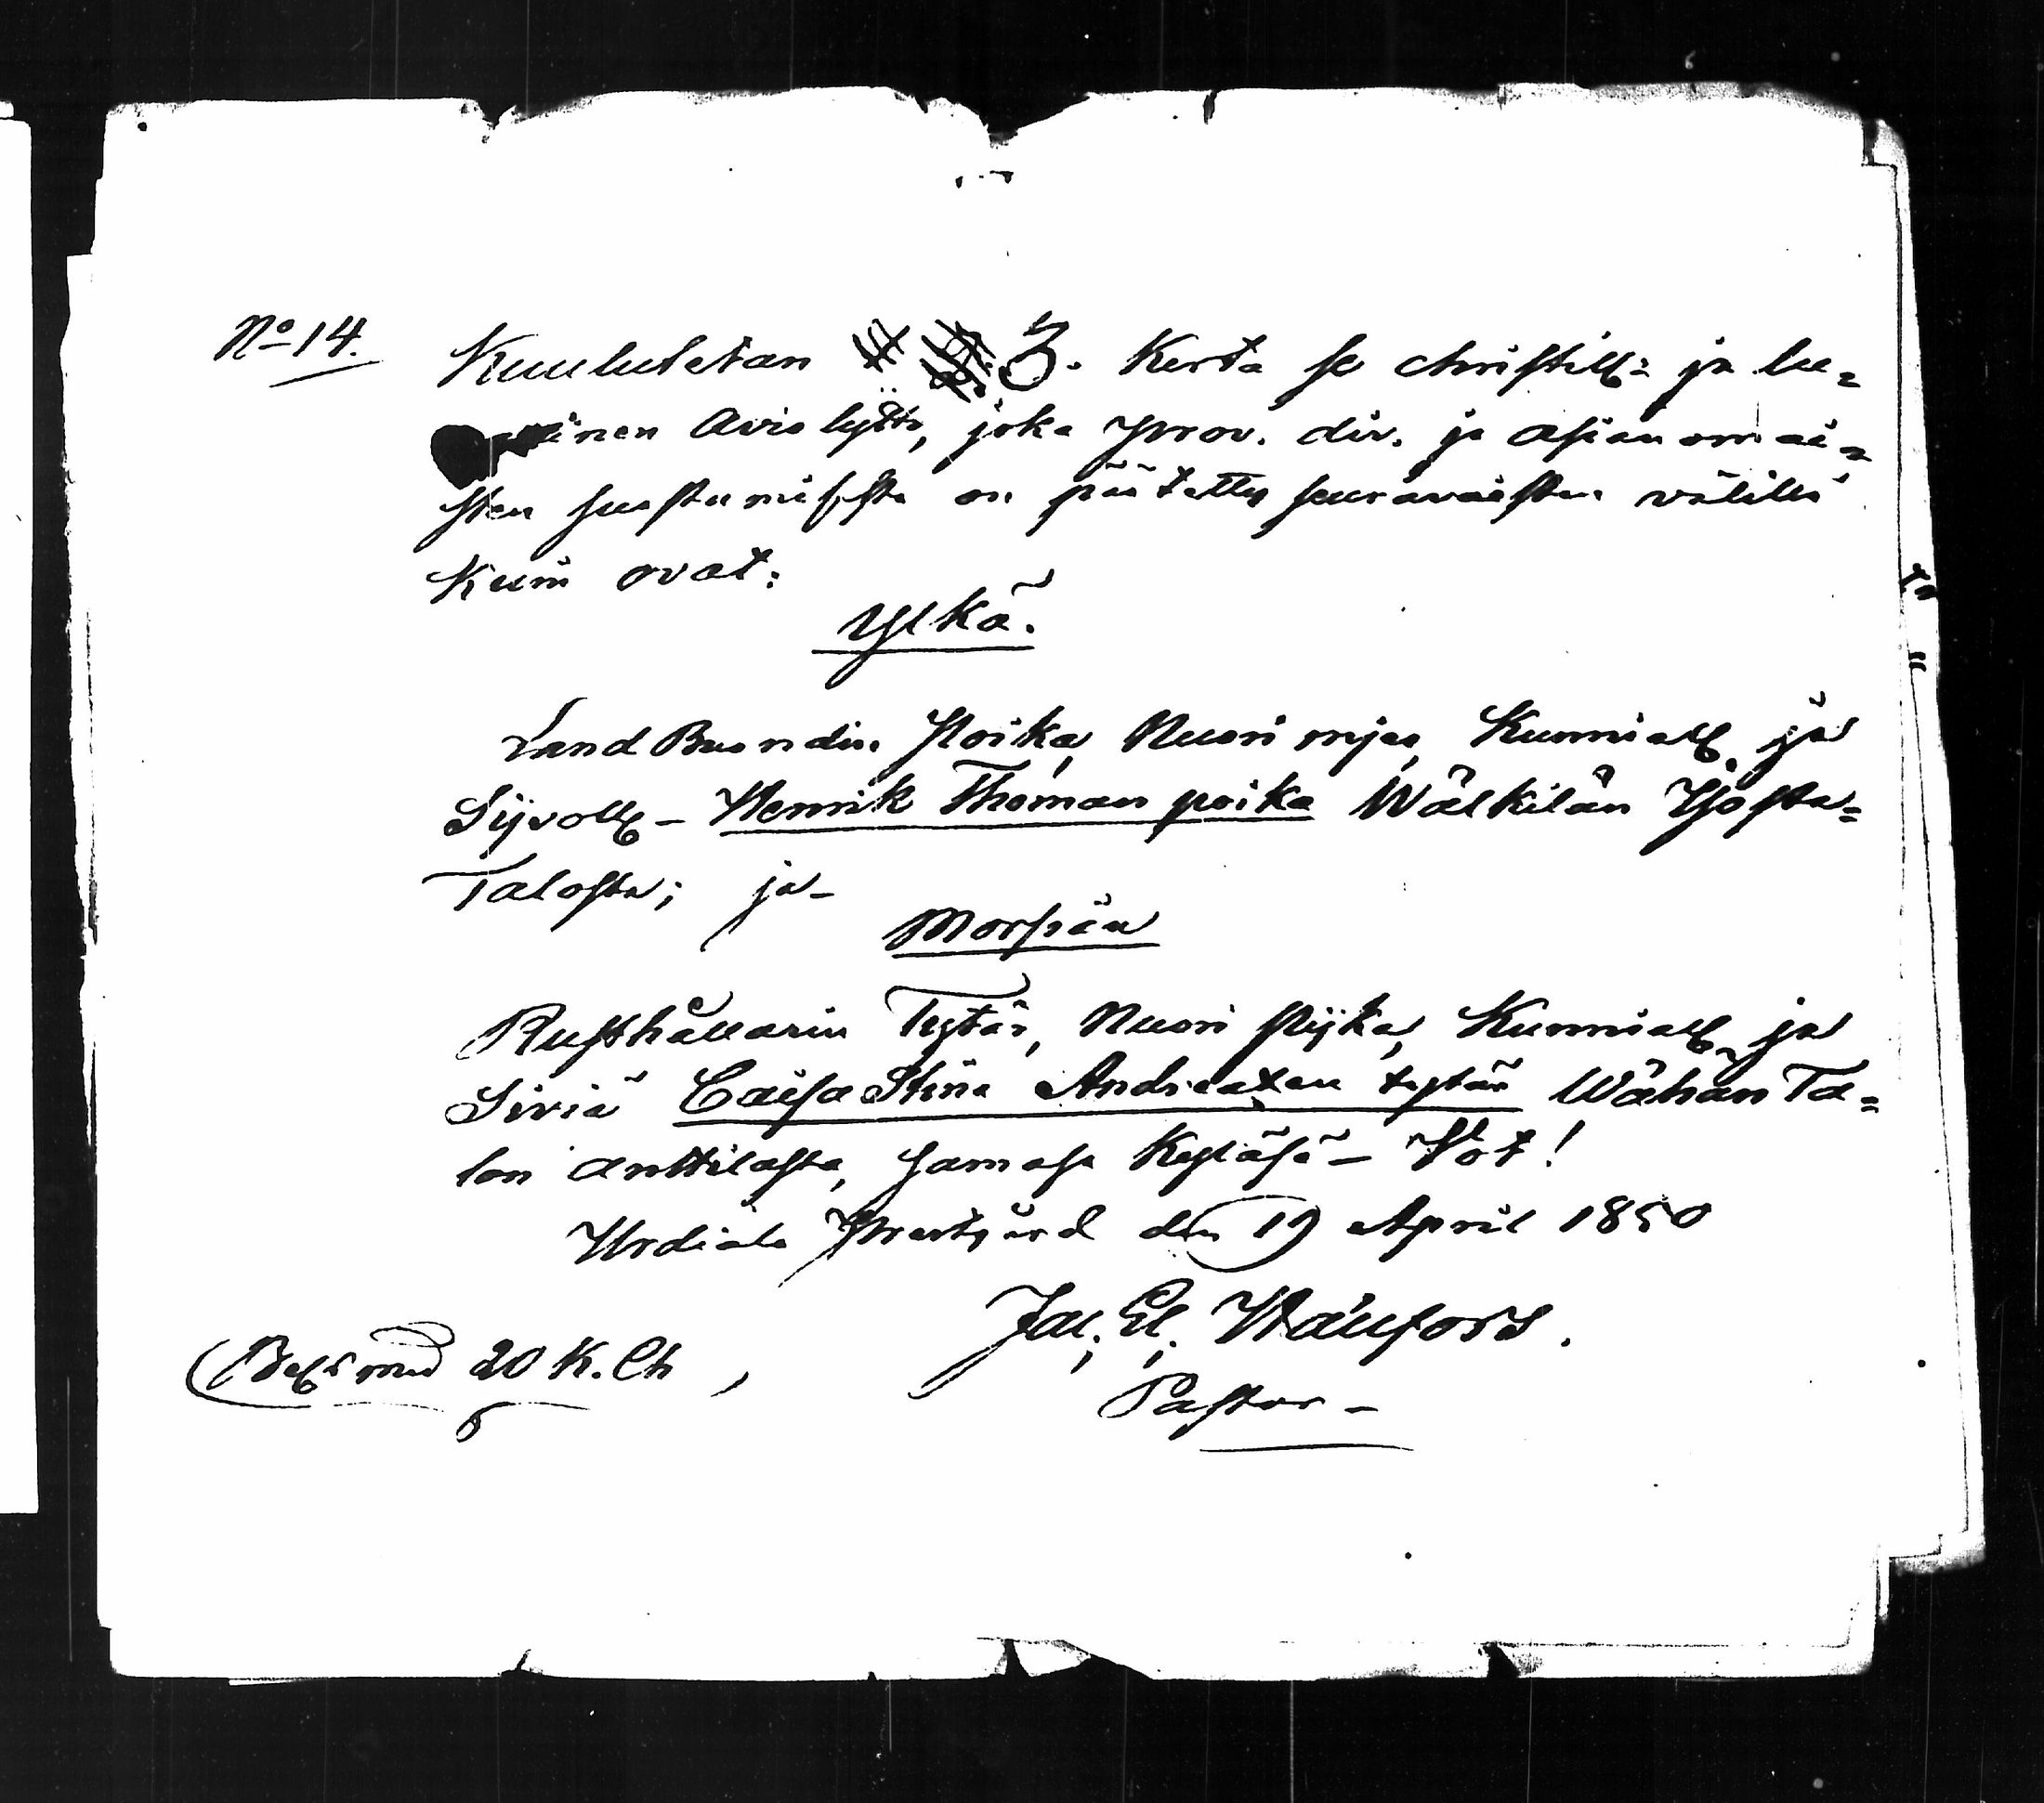 No 14. Kuulutetan 3. Kerta se christill: ja lu=
inen Avio lijtto, joka prov. div. ja asian omai=
sten suostumisesta on päätetty seuravaisten välillä
Kuin ovat:
Ylkä.
Land Buondin Poika, Nuori mjes, Kunniall. ja
Sijvoll - Henrik Thoman poika Wälkilän Yjösta=
Talosta; ja-
Morsian
Rusthållarin Tytär, Nuori Pijka, Kunniall. ja
Siviä Caisa Stina Andreaxen tytär Wähän Ta=
lon Anttilasta, samasa Kyläsä - Vot!
Urdiala Prestgård den 19 April 1850
Jac. El. Wänfors.
Pastor -
Bet. med 20 K. Ch